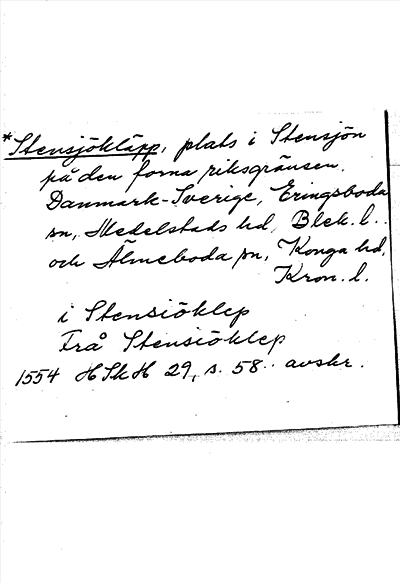 *Stensjökläpp, plats i Stensjön
på den forna riksgränsen.
Danmark-Sverige, Eringsboda
sn, Medelstads hd, Blek. l.
och Älmeboda sn, Konga hd,
Kron. l.
i Stensiöklep
Frå Stensiöklep
1554 HSkH 29, s. 58. avskr.